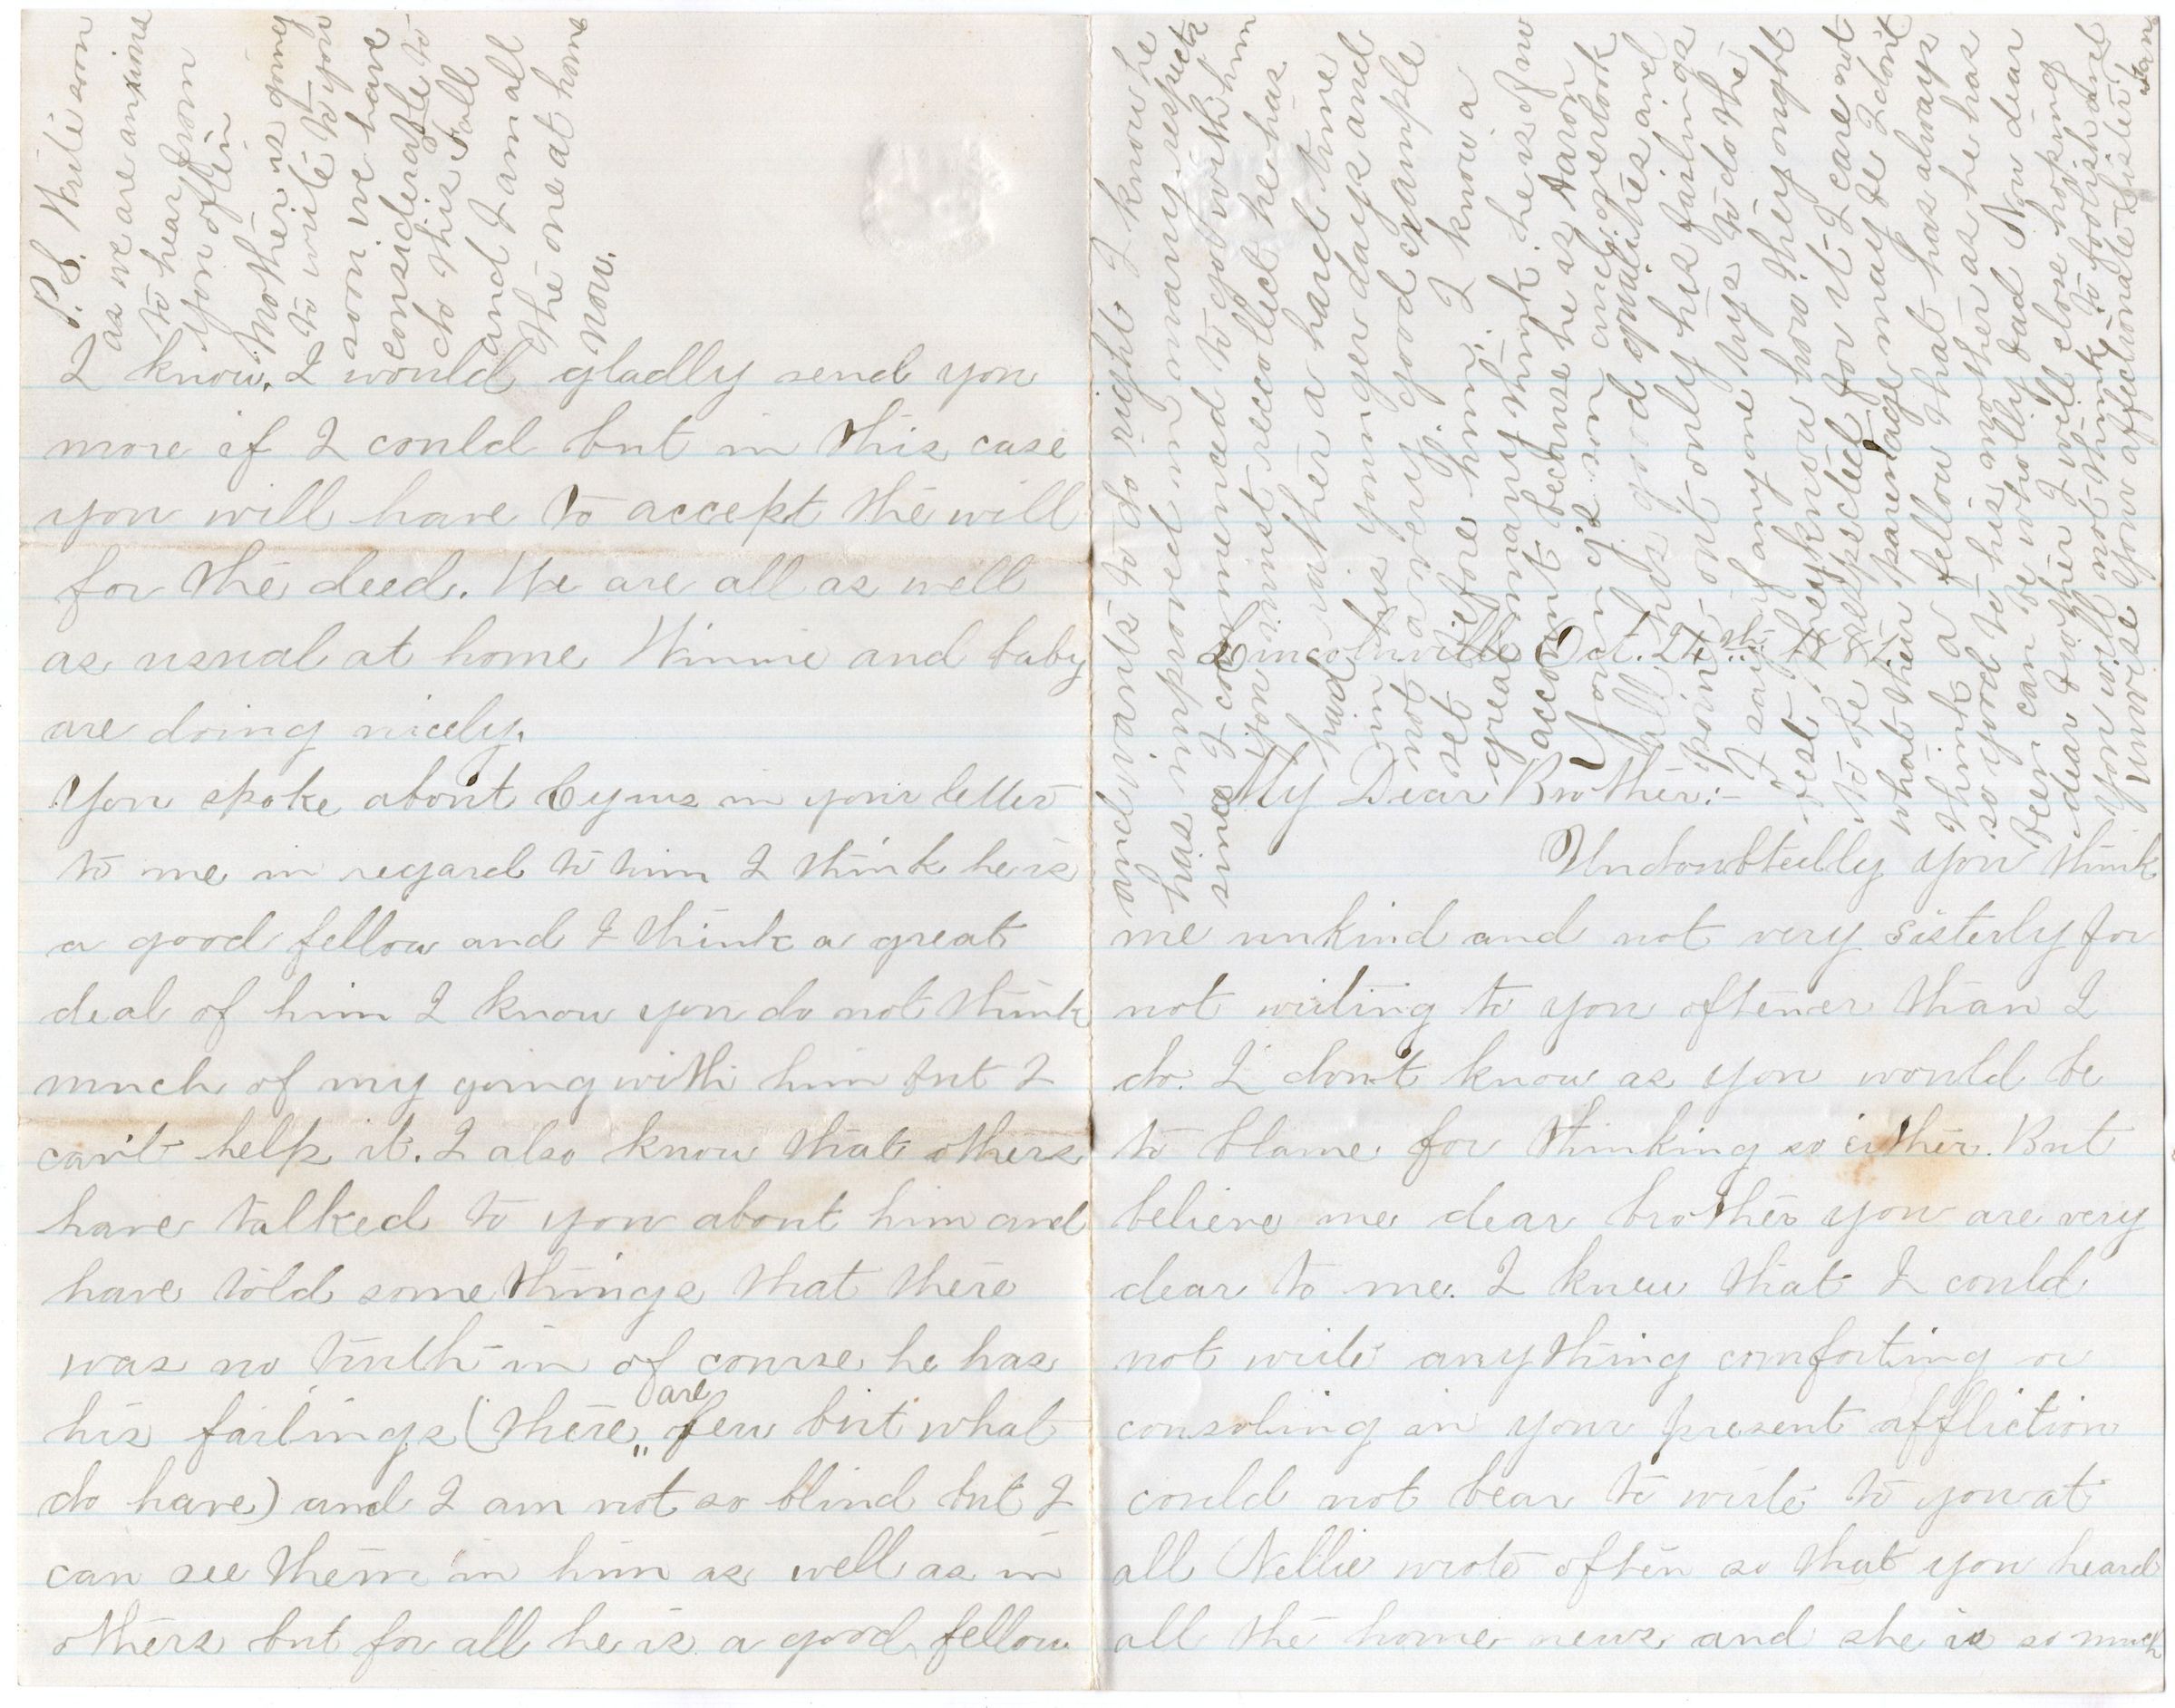 Lincolnville Oct. 24th 1881.
My Dear Brother:-
Undoubtedly you think
me unkind and not very sisterly for
not writing to you oftener than I
do. I don't know as you would be
to blame for thinking so either. But
believe me dear brother you are very
dear to me. I knew that I could
not write anything comforting or
consoling in your present affliction
could not bear to write to you at
all Nellie wrote often so that you heard
all the home news and she is so much
I know. I would gladly send you
more if I could but in this case
you will have to accept the will
for the deed. We are all as well
as usual at home Winnie and baby
are doing nicely.
You spoke about Cyrus in your letter
to me in regard to him I think he is
a good fellow and I think a great
deal of him I know you do not think
much of my going with him but I
can't help it. I also know that others
have talked to you about him and
have told some things that there
was no truth in of course he has
his failings (there are few but what
do have) and I am not so blind but I
can see them in him as well as in
others but for all he is a good fellow
and wants to do right I know he
has improved in many respects
since I commenced to go with him
you must reccollect he has
had rather a hard time
in his younger days and
not a very good example
set before him. I know a
great many think he is of no
account because he is Aaron
Young's son and overlook
all his good qualities and
point out only his failings
I say if any one trys to do the
best they know how they ought
to be respected for it I care not
what their parentage may be I don't
think a fellow that has always
so good to his mother as he has
been can be wholly bad Now dear
dear brother I will close hoping
you will not think to foolish and
unwise Your affectionate sister
P.S. Write soon
as we are anxious
to hear from
you often
Mother is going
to write to you
soon we have
considerable to
do this Fall
and I am all
the one at home
now.